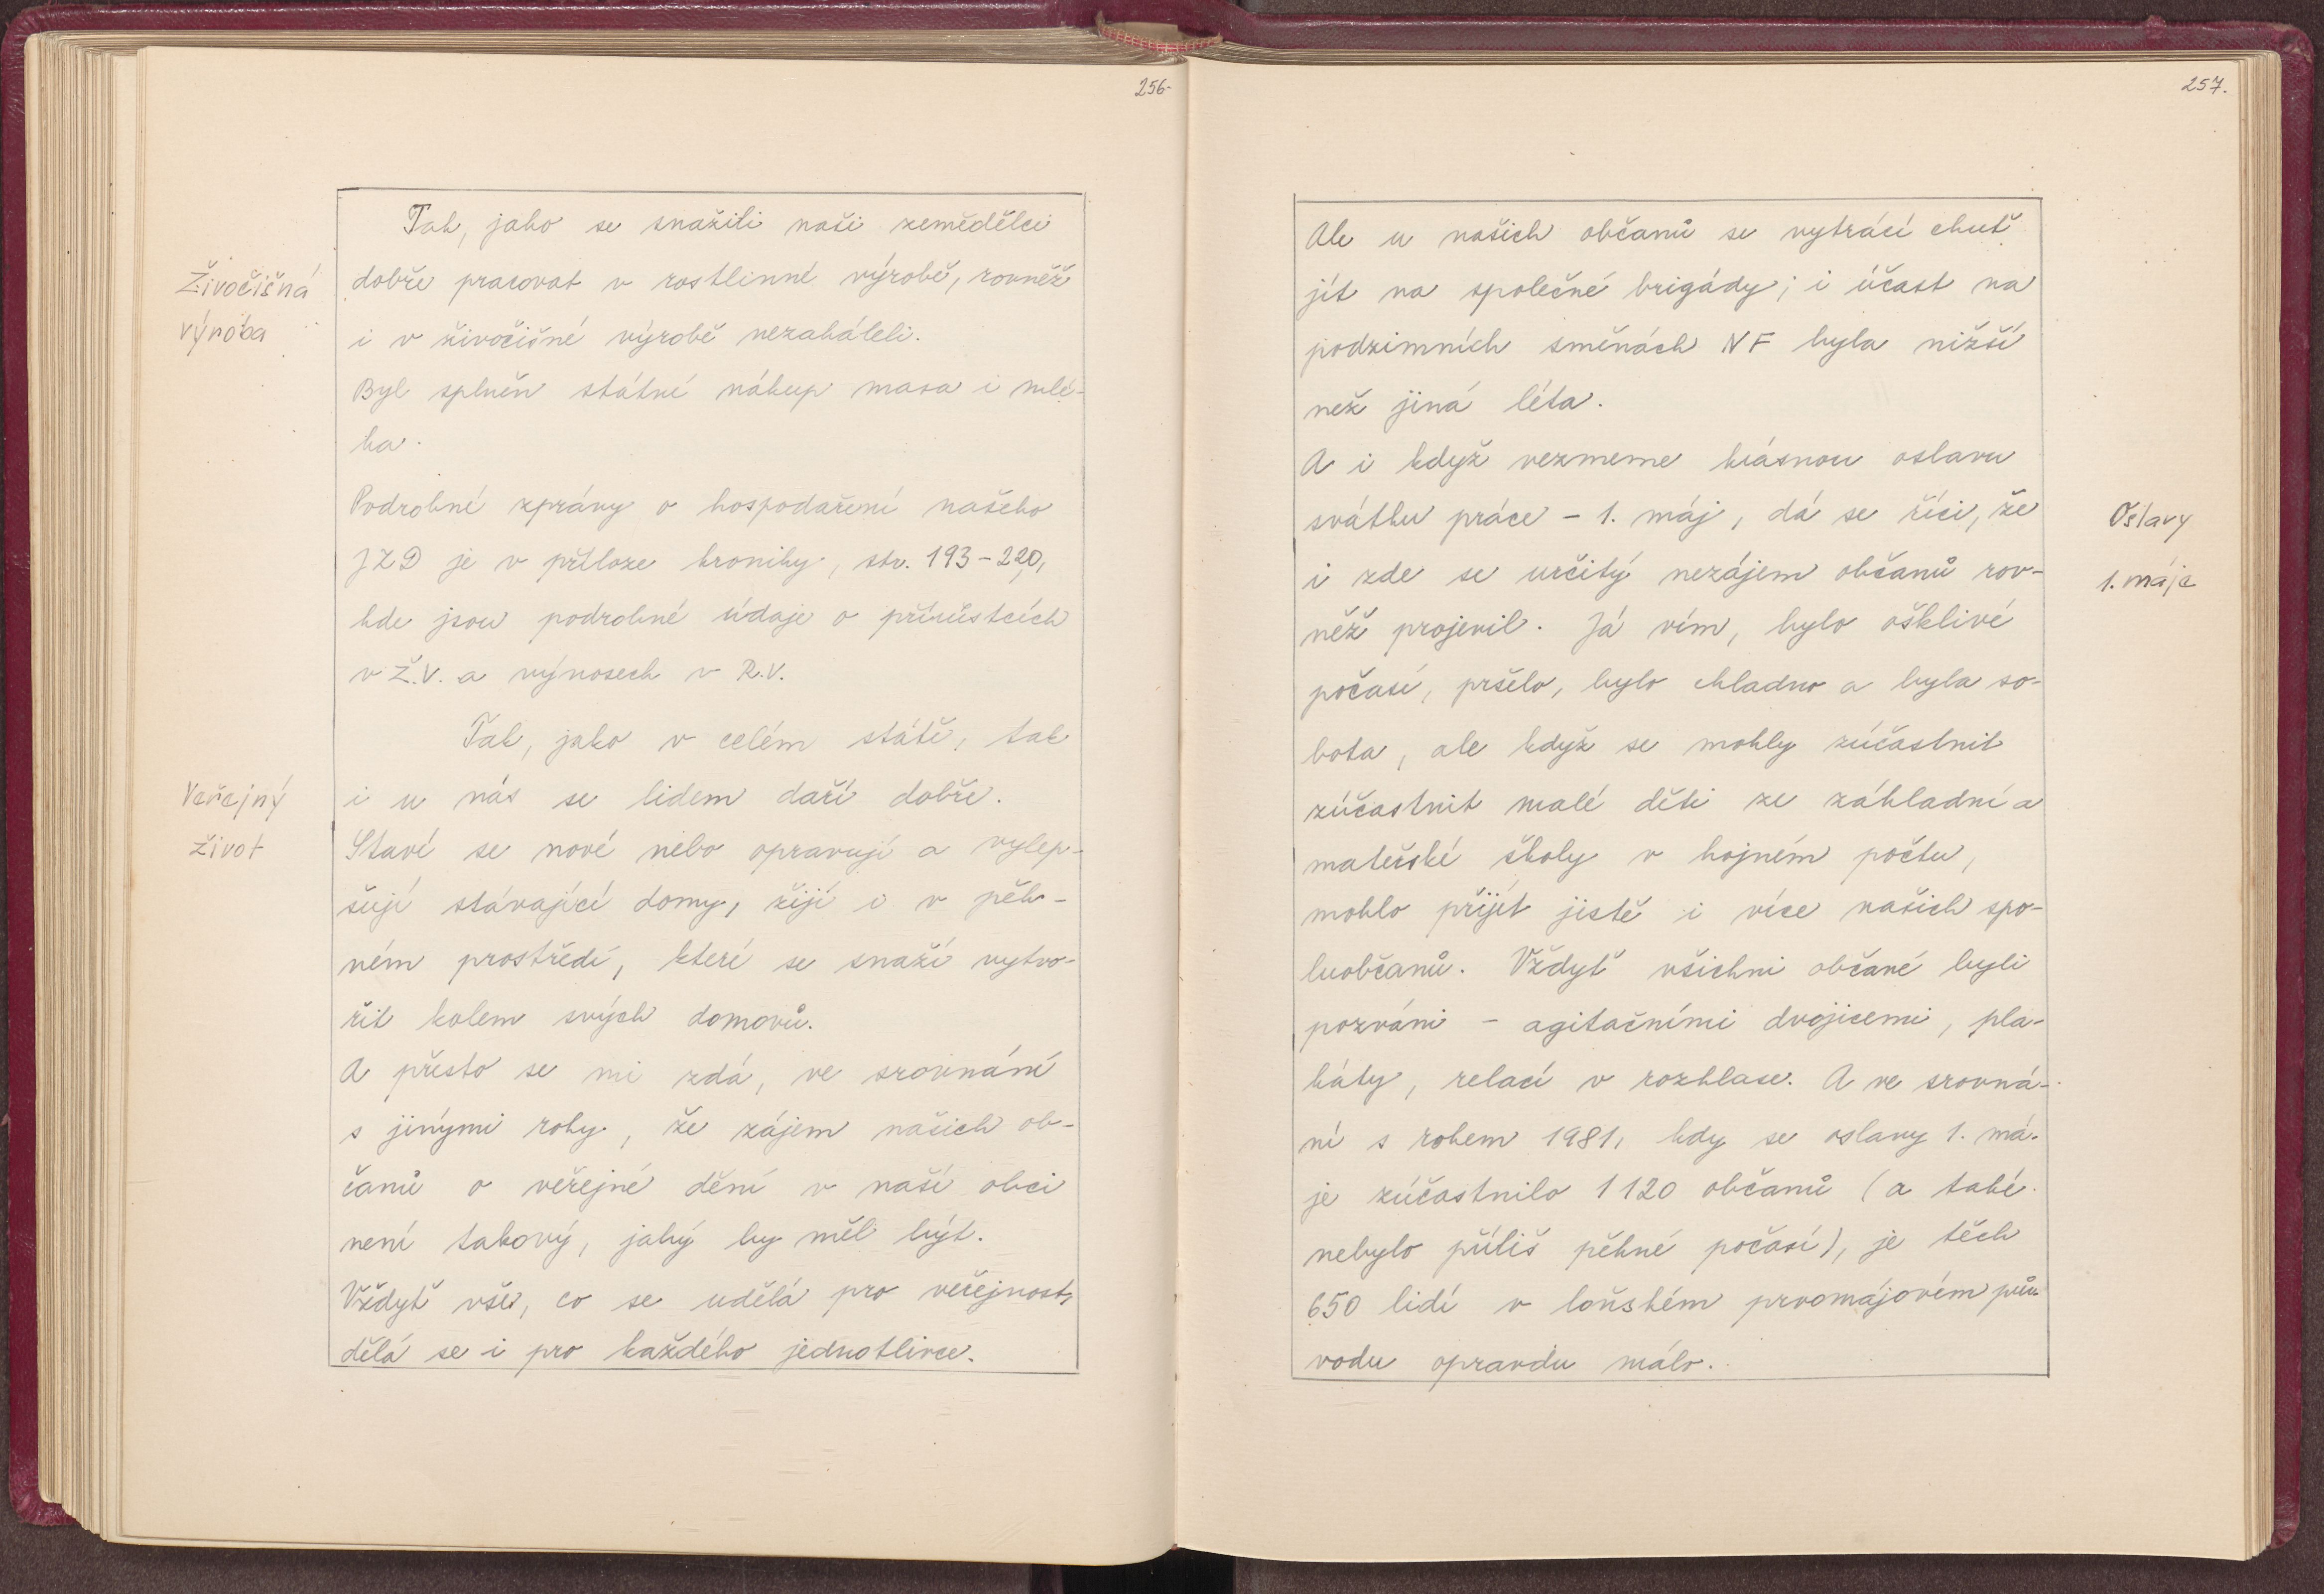 256.
Tak, jako se snažili naši zemědělci
Živočišná
dobře pracovat v rostlinné výrobě, rovněž
výroba
i v živočišné výrobě nezaháleli.
Byl splněn státní nákup masa i mlé-
ka.
Podrobné zprávy o hospodaření našeho
JZD je v příloze kroniky, str. 193-220,
kde jsou podrobné údaje o přírůstcích
v Ž.V. a výnosech v R.V.
Tak, jako v celém státě, tak
Veřejný
i u nás se lidem daří dobře.
život
Staví se nové nebo opravují a vylep-
šují stávající domy, žijí i v pěk-
ném prostředí, které se snaží vytvo-
řit kolem svých domovů.
A přesto se mi zdá, ve srovnání
s jinými roky, že zájem našich ob-
čanů o veřejné dění v naší obci
není takový, jaký by měl být.
Vždyť vše, co se udělá pro veřejnost,
dělá se i pro každého jednotlivce.
257.
Ale u našich občanů se vytrácí chuť
jít na společné brigády; i účast na
podzimních směnách NF byla nižší
než jiná léta.
A i když vezmeme krásnou oslavu
svátku práce - 1. máj, dá se říci, že
Oslavy
i zde se určitý nezájem občanů rov-
1. máje
něž projevil. Já vím, bylo ošklivé
počasí, pršelo, bylo chladno a byla so-
bota, ale když se mohly zúčastnit
zúčastnit malé děti ze základní a
mateřské školy v hojném počtu,
mohlo přijít jistě i více našich spo-
luobčanů. Vždyť všichni občané byli
pozváni - agitačními dvojicemi, pla-
káty, relací v rozhlase. A ve srovná-
ní s rokem 1981, kdy se oslavy 1. má-
je zúčastnilo 1120 občanů (a také
nebylo příliš pěkné počasí), je těch
650 lidí v loňském prvomájovém prů-
vodu opravdu málo.